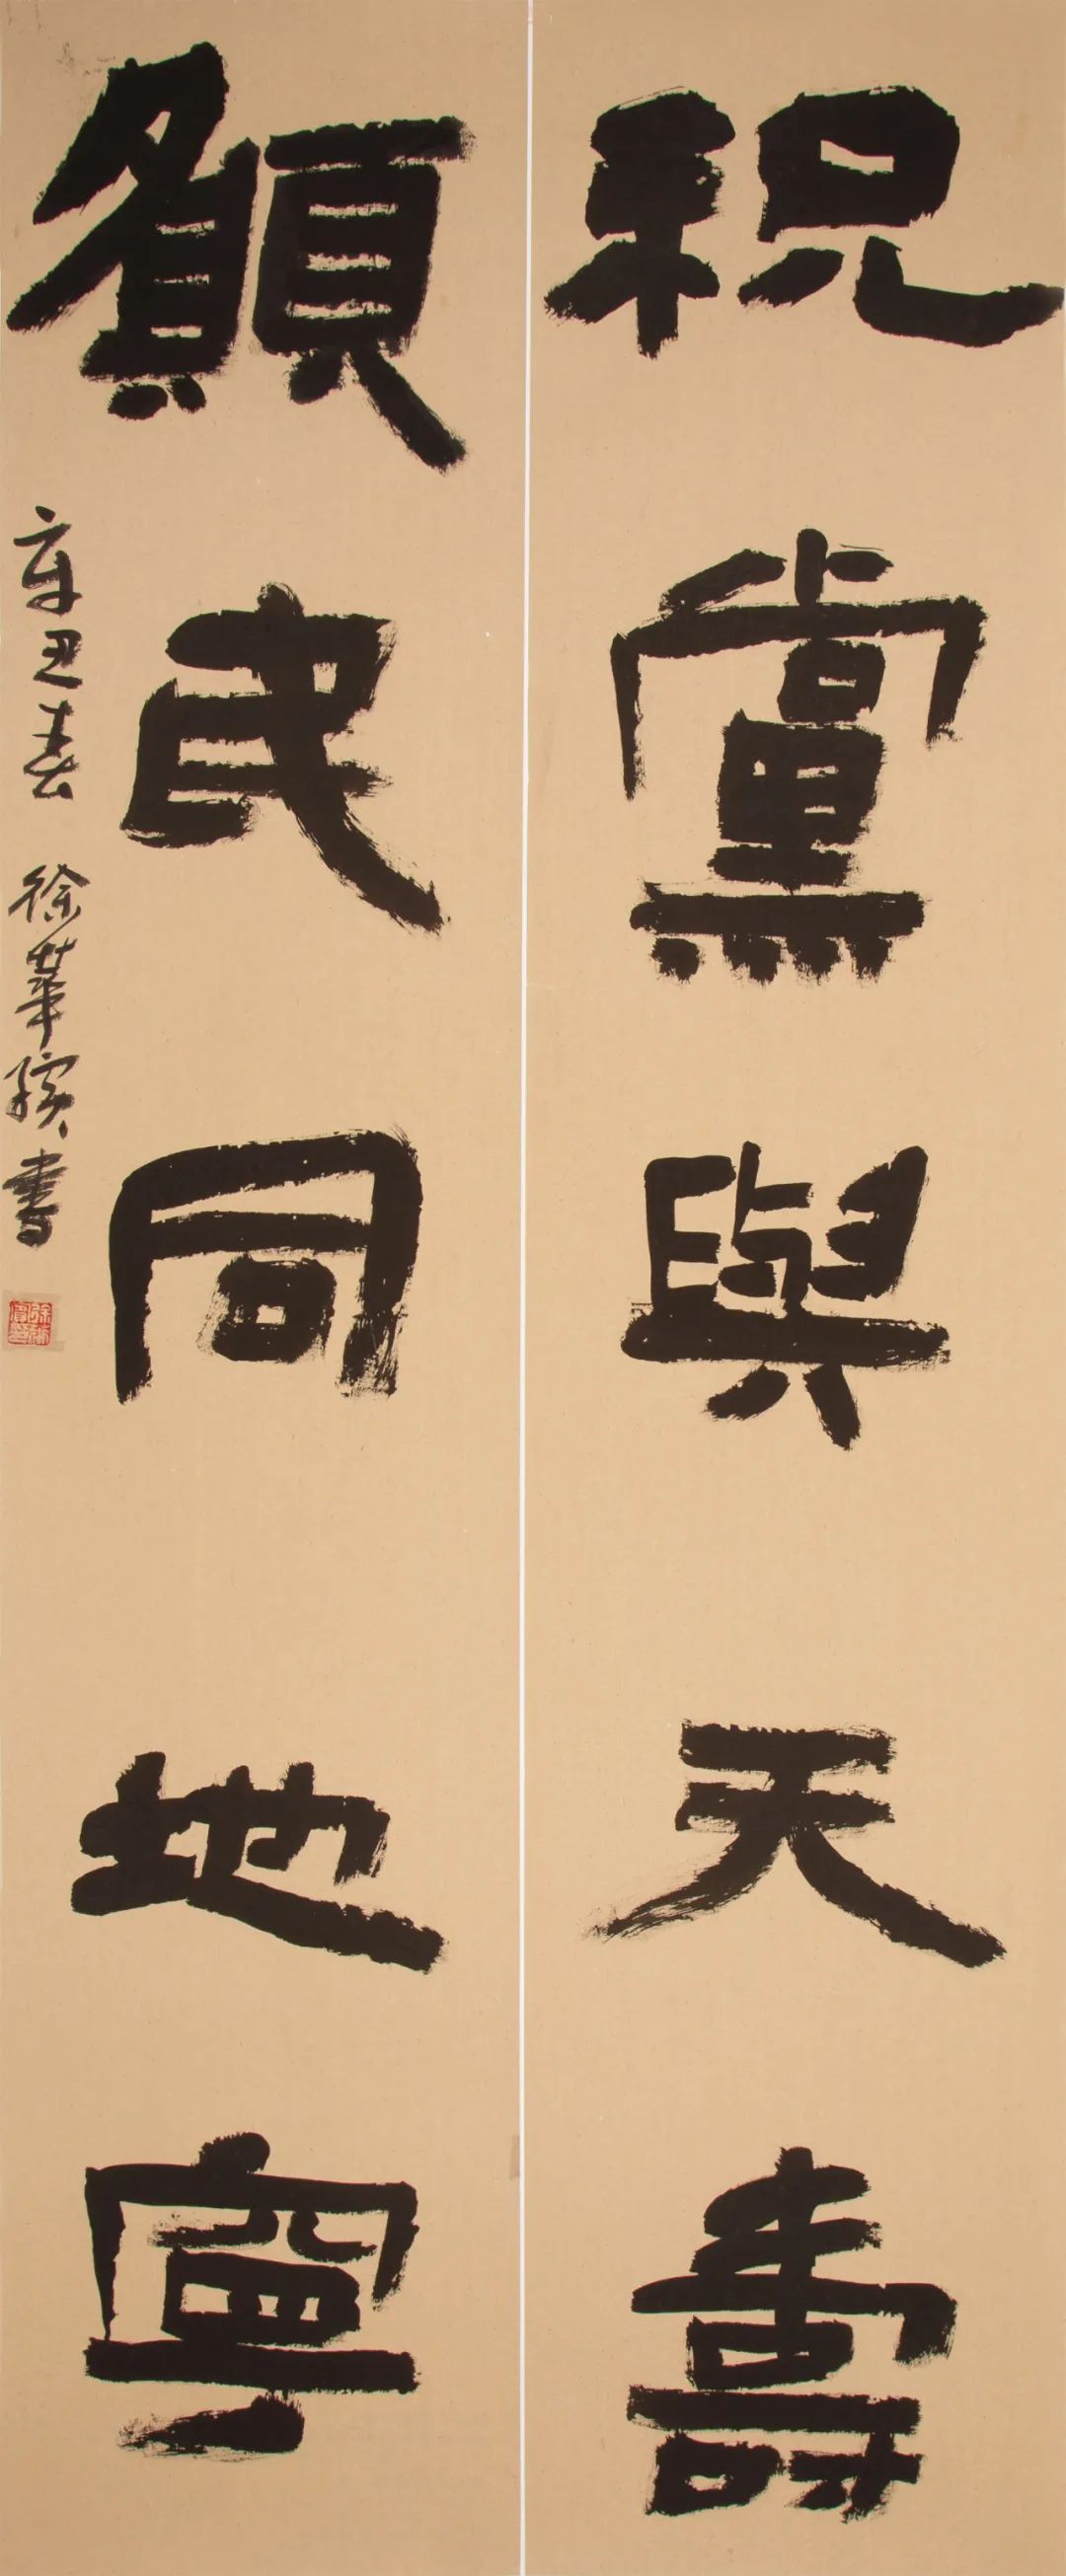 祝黨與天壽
願民同地寧
辛丑春 徐華 書